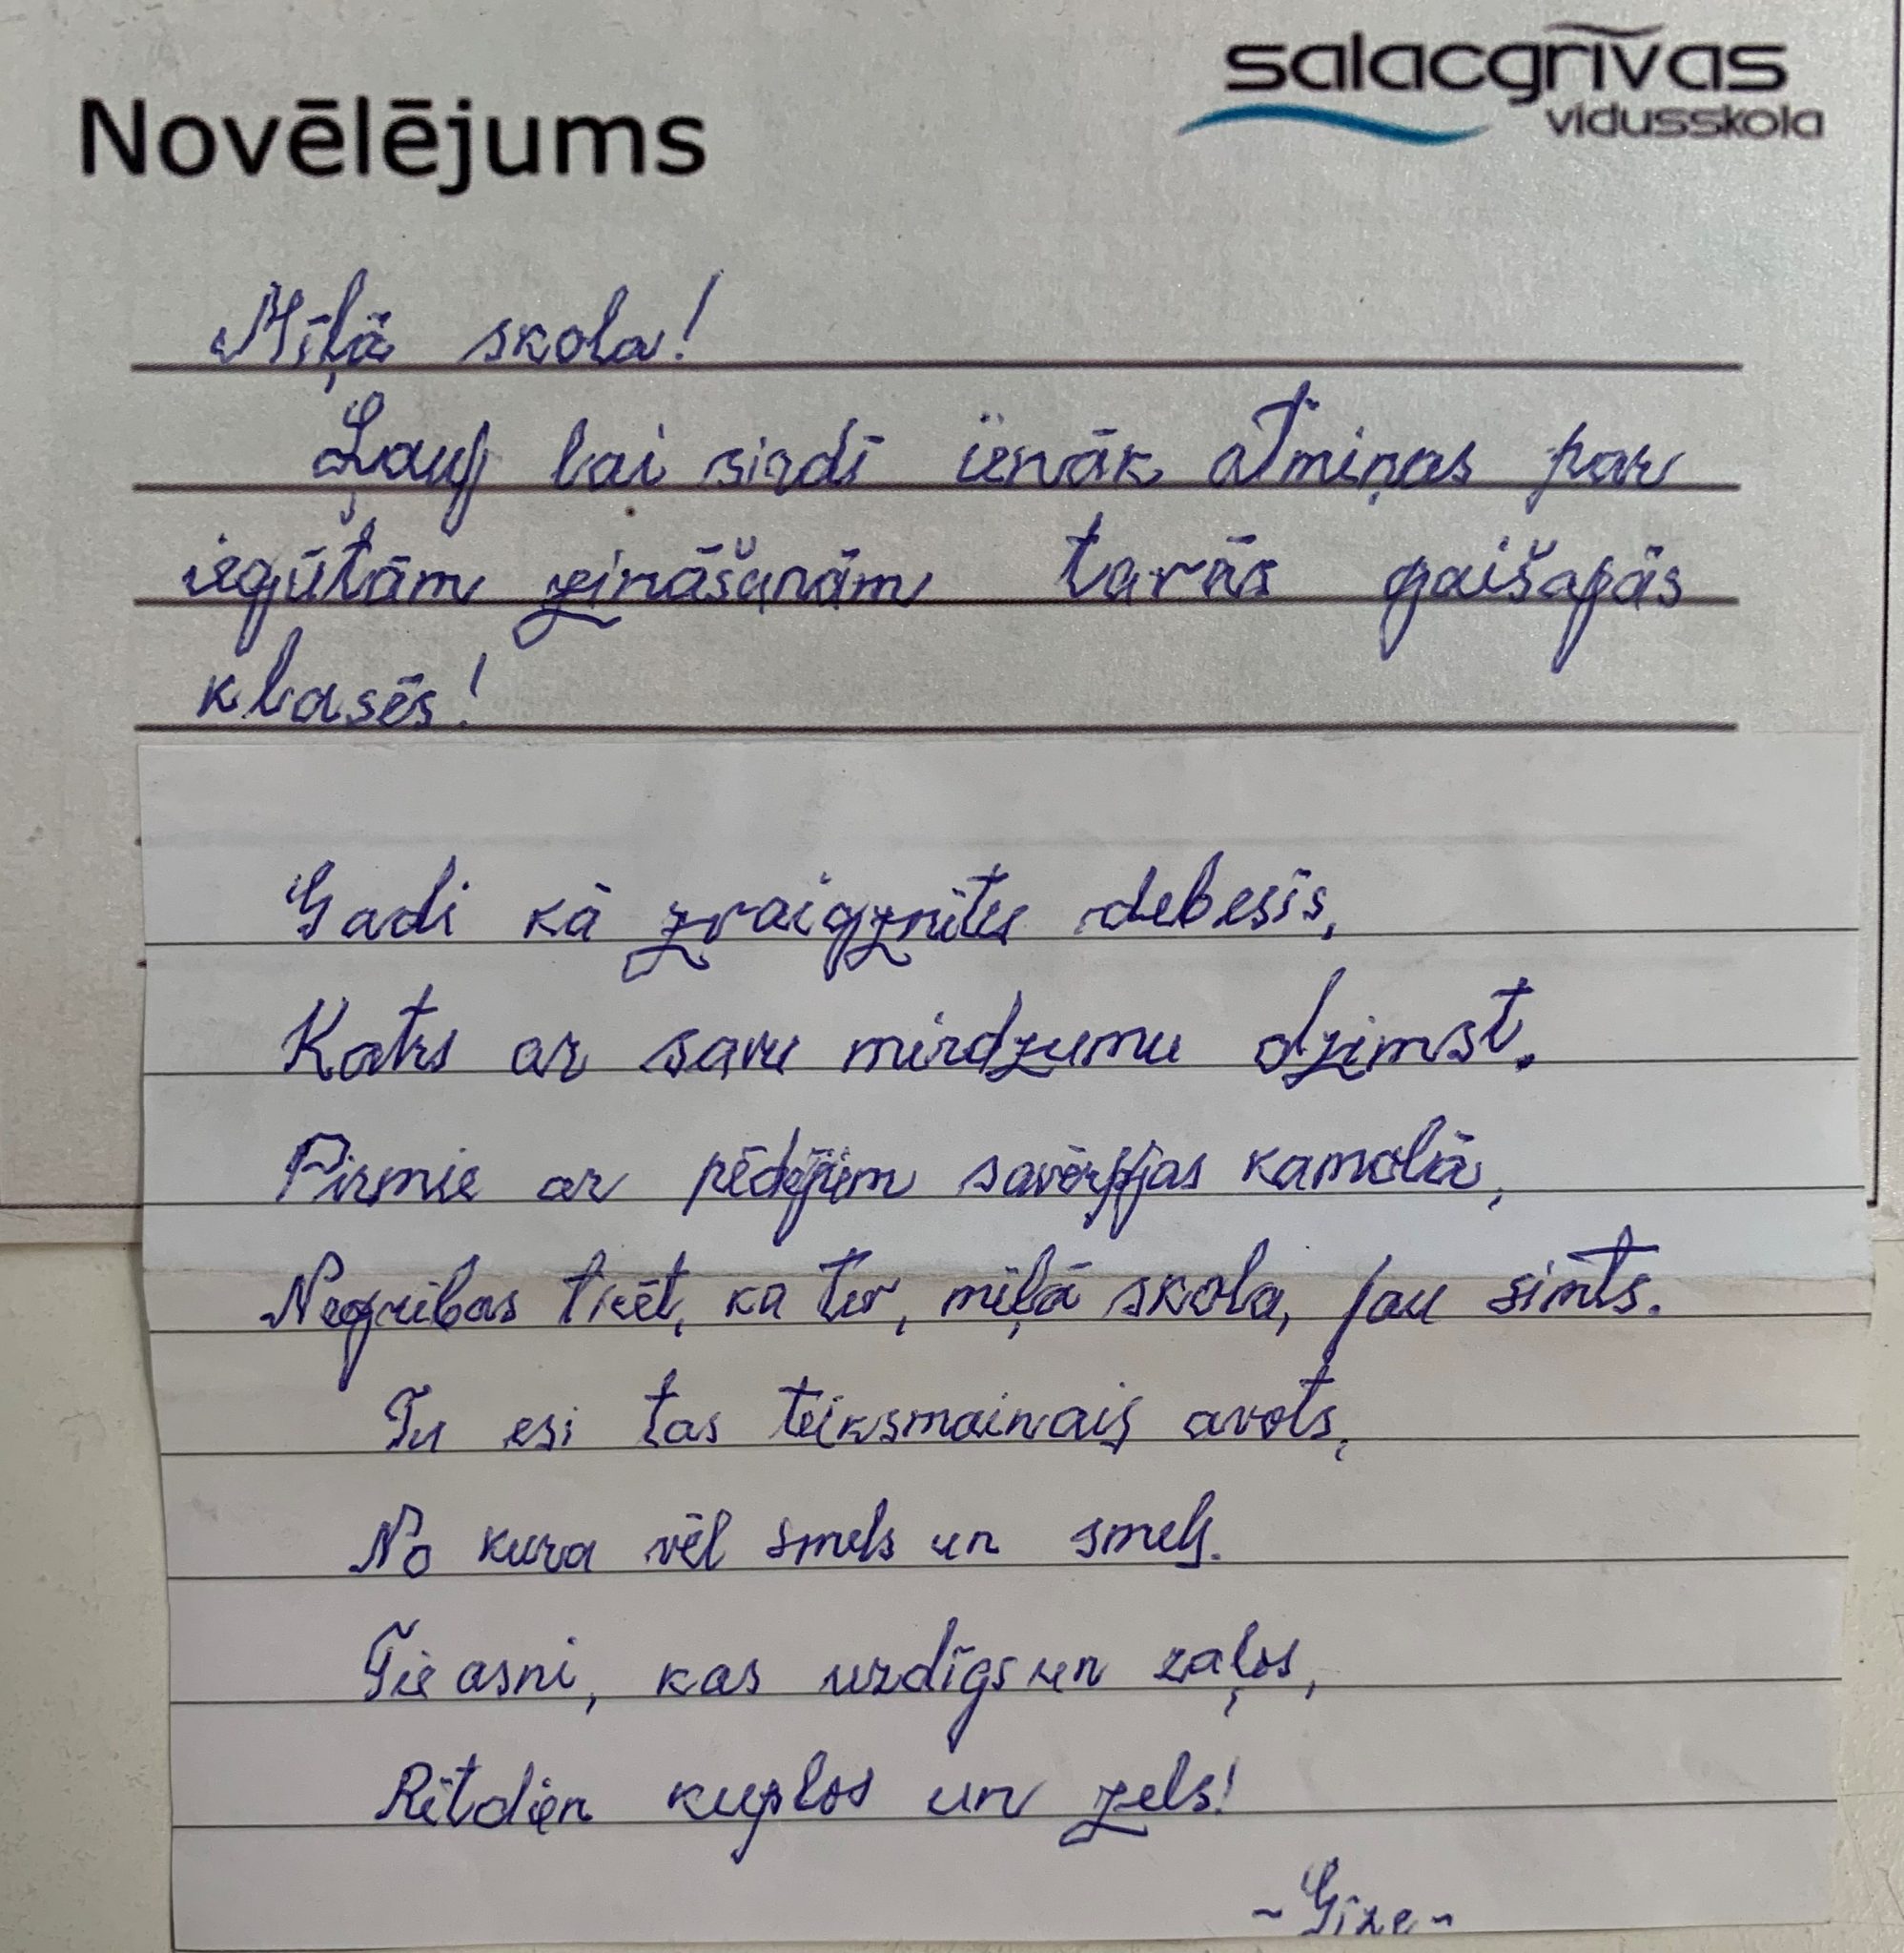 salacgrīvas
vidusskola
Novēlējums
Mīļā skola!
Ļauj lai sirdī ienāk atmiņas par
iegūtām zināšanām tavās gaišajās
klasēs!
Gadi kā zvaigznītes debesīs,
Katrs ar savu mirdzumu dzimst.
Pirmie ar pēdējiem savērpjas kamolā,
Negribas ticēt, ka tev, mīļā skola, jau simts.
Tu esi tas teiksmainais avots,
No kura vēl smels un smels.
Tie asni, kas uzdīgs un zaļos,
Rītdien kuplos un zels!